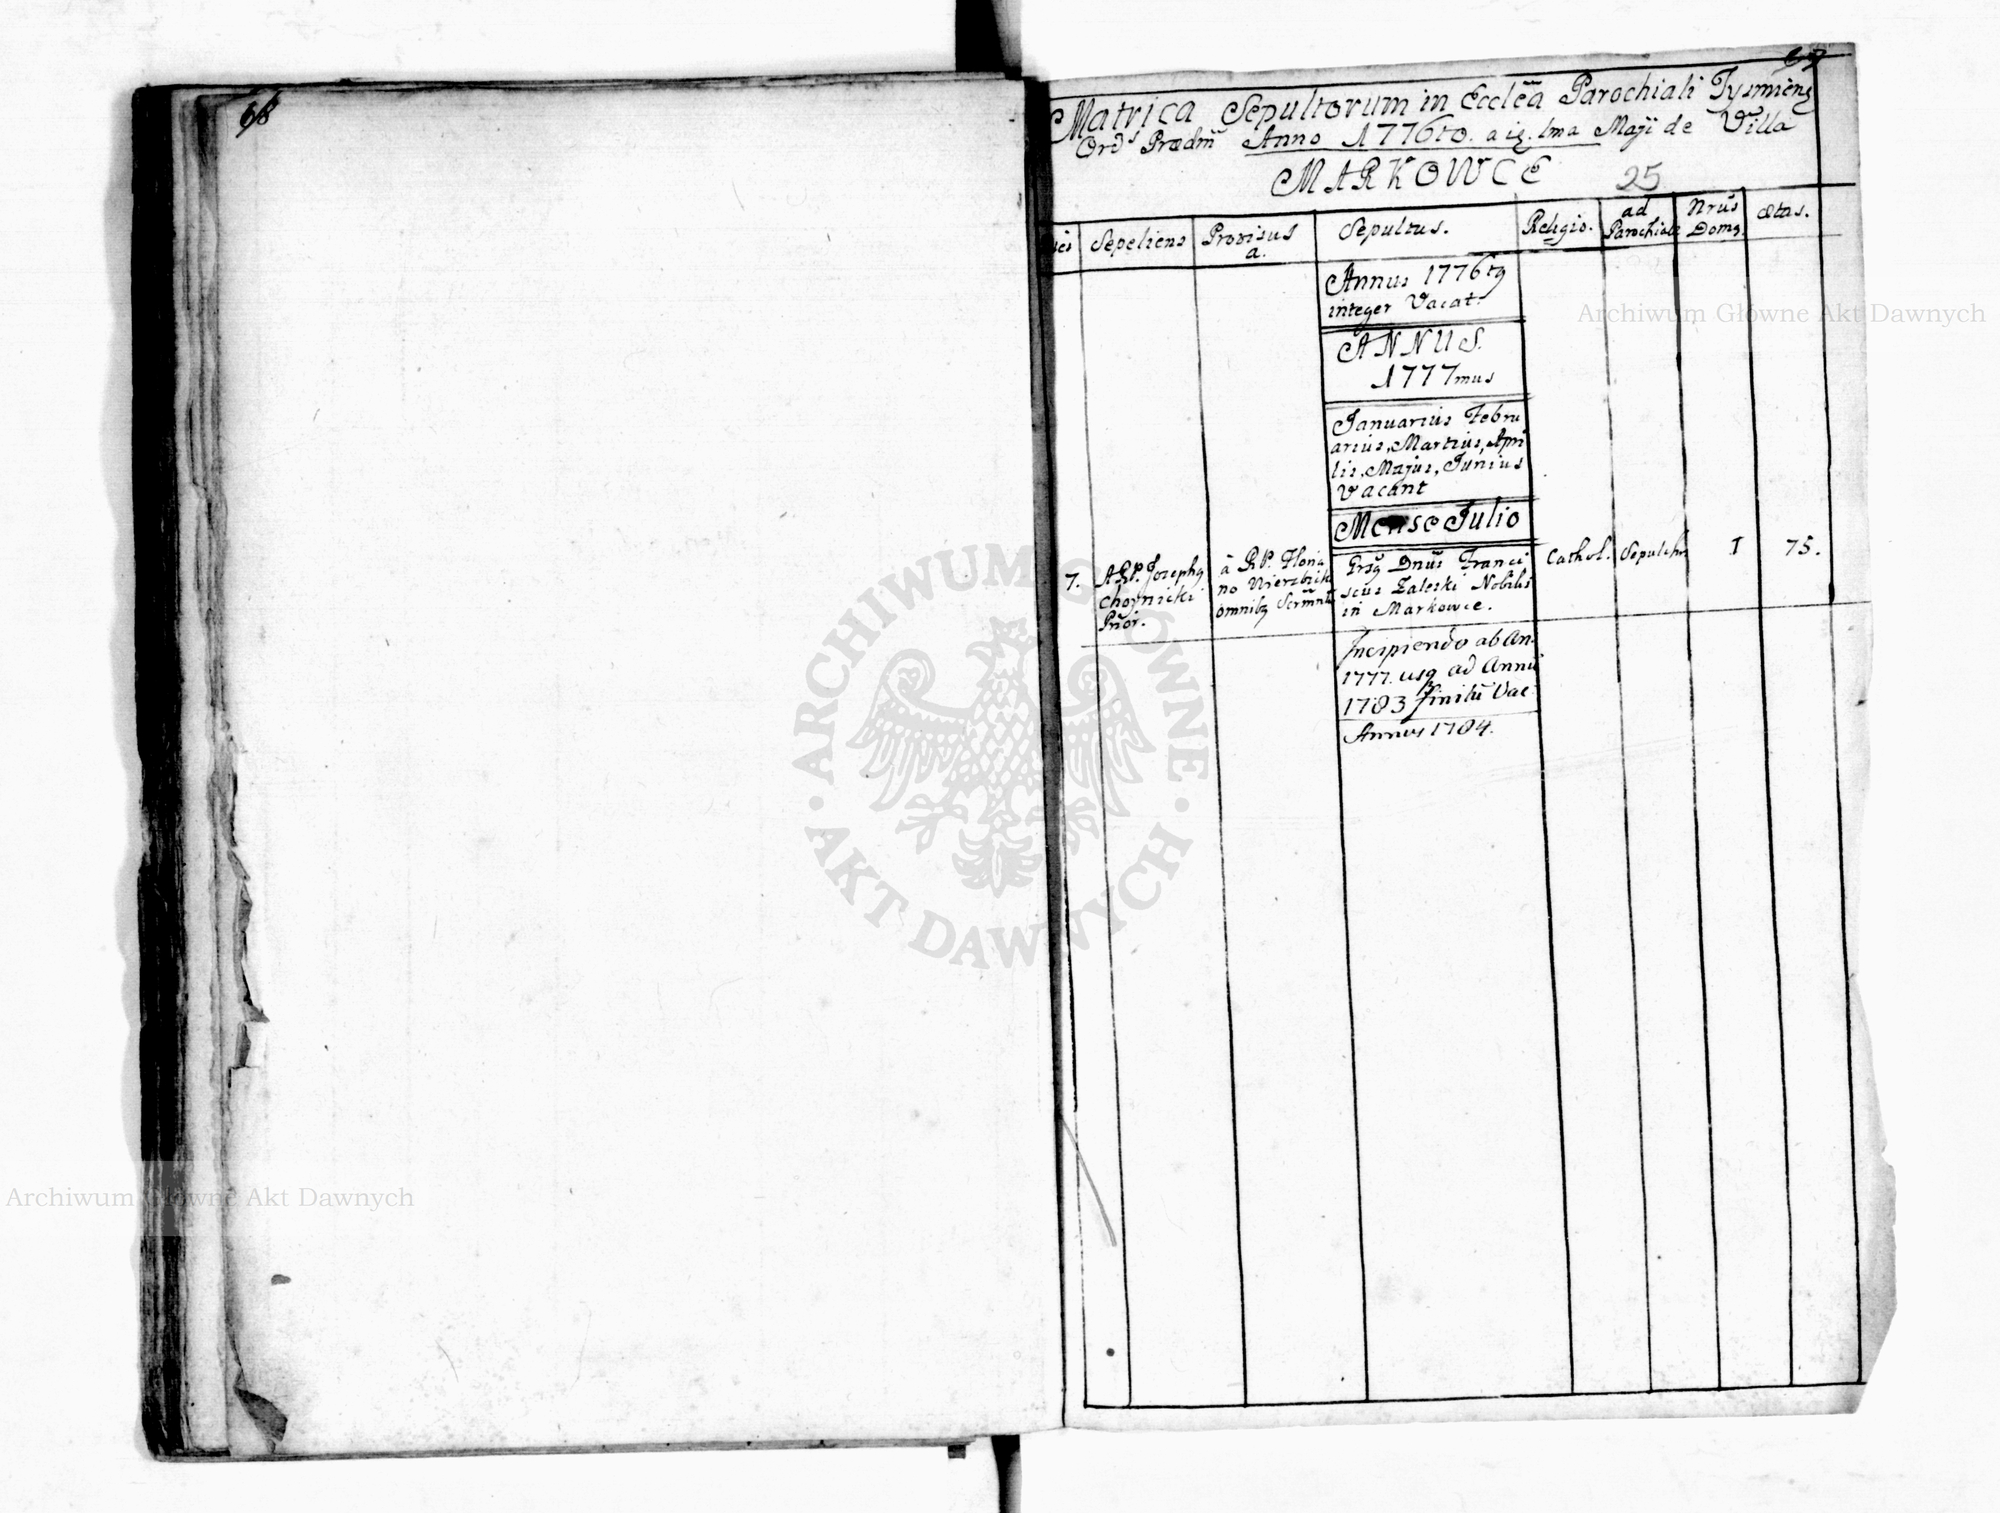 68
69
Matrica Sepultorum in Ecclēa Parochiali Tysmienę
Ordˢ Prædm̄ Anno 1776to. a ią. 1ma Maji de Villa
MARKOWCE 25
Sepeliens
Provisus
a.
Sepultus.
Religio.
ad
Parochiale
Nrūs
Domg
ætas.
Annus 1776tg
integer Vacat.
ANNUS.
1777mus
Januarius Febru
arius, Martius, Apri
lis, Majus, Junius
Vacant
Mense Julio
7.
ARP. Josephg
Choynicki
Prior.
à RP. Floria
no Wierzbick
omnibg Scrmnt
Grsg Dnūs Franci
scus Zaleski Nobilis
in Markowce.
Cathol.
Sepulchr
I
75.
Incipiendo ab An.
1777. usq ad Annū
1783 finitū Vac.
Annus 1784.
Archiwum Główne Akt Dawnych
Archiwum Główne Akt Dawnych
ARCHIWUM GŁÓWNE
AKT DAWNYCH